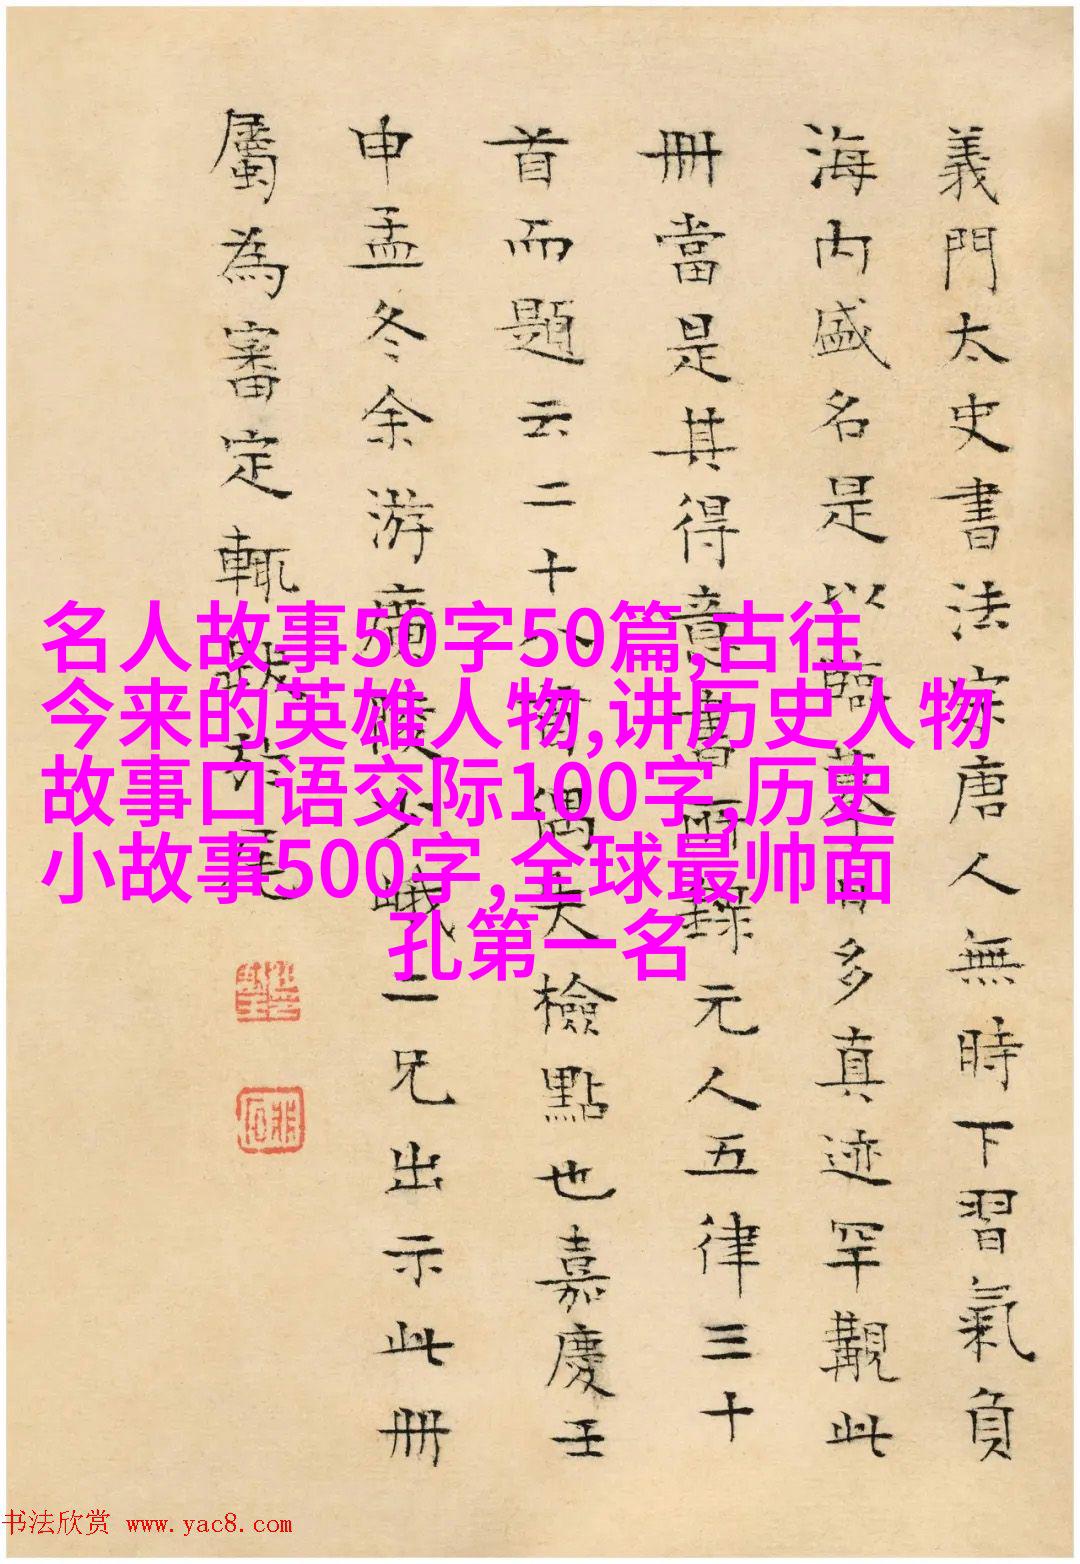 義門太史書法宗唐人無時下習氣負
海内盛名是以臨摹日多真迹罕覯此
冊當是其得意書而錄元人五律三十
首而題云二十八首偶失檢點也嘉慶壬
申孟冬余游廣陵少峨二兄出示此冊
屬為審定輒跋於尾
名人故事50字50篇,古往
今来的英雄人物,讲历史人物
故事口语交际100字,历史
小故事500字,全球最帅面
孔第一名
书法欣赏 www.yac8.com